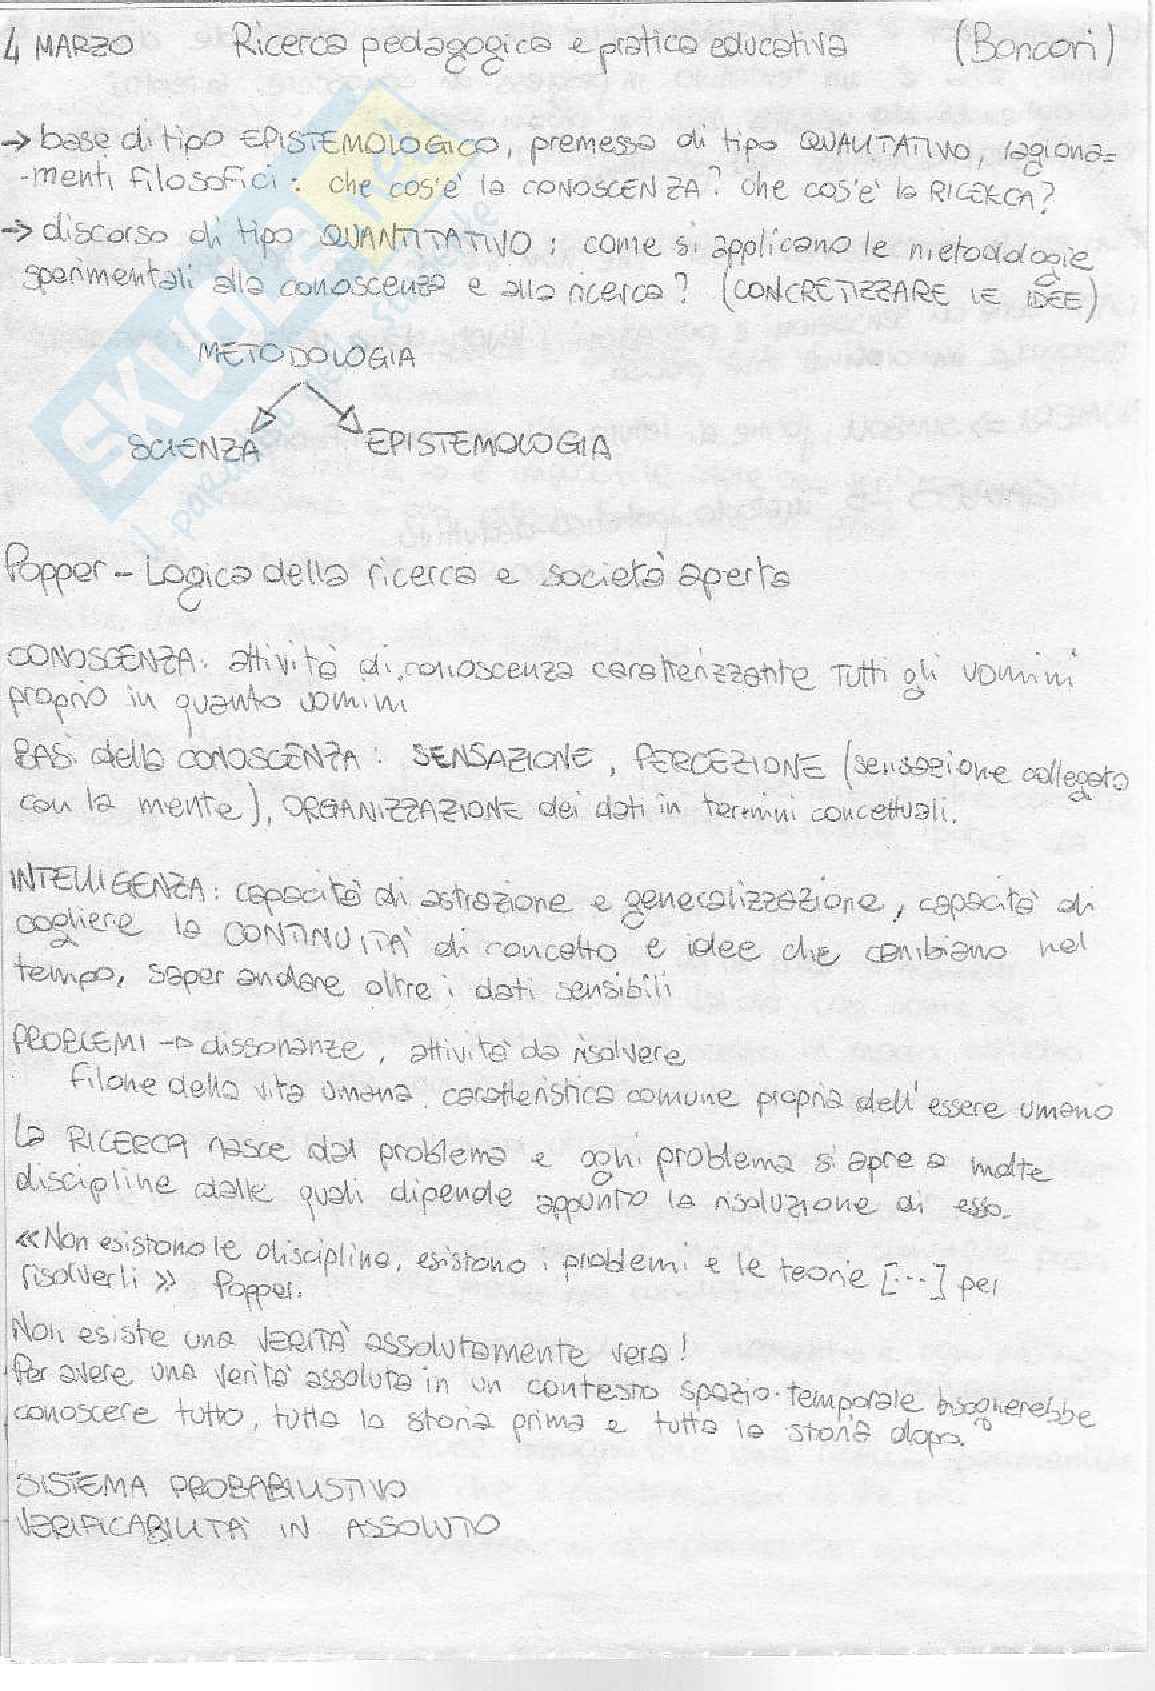 4 MARZO Ricerca pedagogica e pratica educativa (Boncori)
→ base di tipo EPISTEMOLOGICO, premessa di tipo QUALITATIVO, ragiona=
-menti filosofici: che cos'è la CONOSCENZA? che cos'è la RICERCA?
→ discorso di tipo QUANTITATIVO: come si applicano le metodologie
sperimentali alla conoscenza e alla ricerca? (CONCRETIZZARE LE IDEE)
METODOLOGIA
SCIENZA EPISTEMOLOGIA
SKUOLA.net
il paradiso dello studente
Popper - Logica della ricerca e società aperta
CONOSCENZA: attività di conoscenza caratterizzante tutti gli uomini
proprio in quanto uomini
BASI della CONOSCENZA: SENSAZIONE, PERCEZIONE (sensazione collegata
con la mente), ORGANIZZAZIONE dei dati in termini concettuali.
INTELLIGENZA: capacità di astrazione e generalizzazione, capacità di
cogliere la CONTINUITÀ di concetto e idee che cambiano nel
tempo, saper andare oltre i dati sensibili
PROBLEMI → dissonanze, attività da risolvere
filone della vita umana, caratteristica comune propria dell'essere umano
La RICERCA nasce dal problema e ogni problema si apre a molte
discipline dalle quali dipende appunto la risoluzione di esso.
«Non esistono le discipline, esistono i problemi e le teorie [...] per
risolverli» Popper.
Non esiste una VERITÀ assolutamente vera!
Per avere una verità assoluta in un contesto spazio-temporale bisognerebbe
conoscere tutto, tutta la storia prima e tutta la storia dopo.
SISTEMA PROBABILISTIVO
VERIFICABILITÀ IN ASSOLUTO